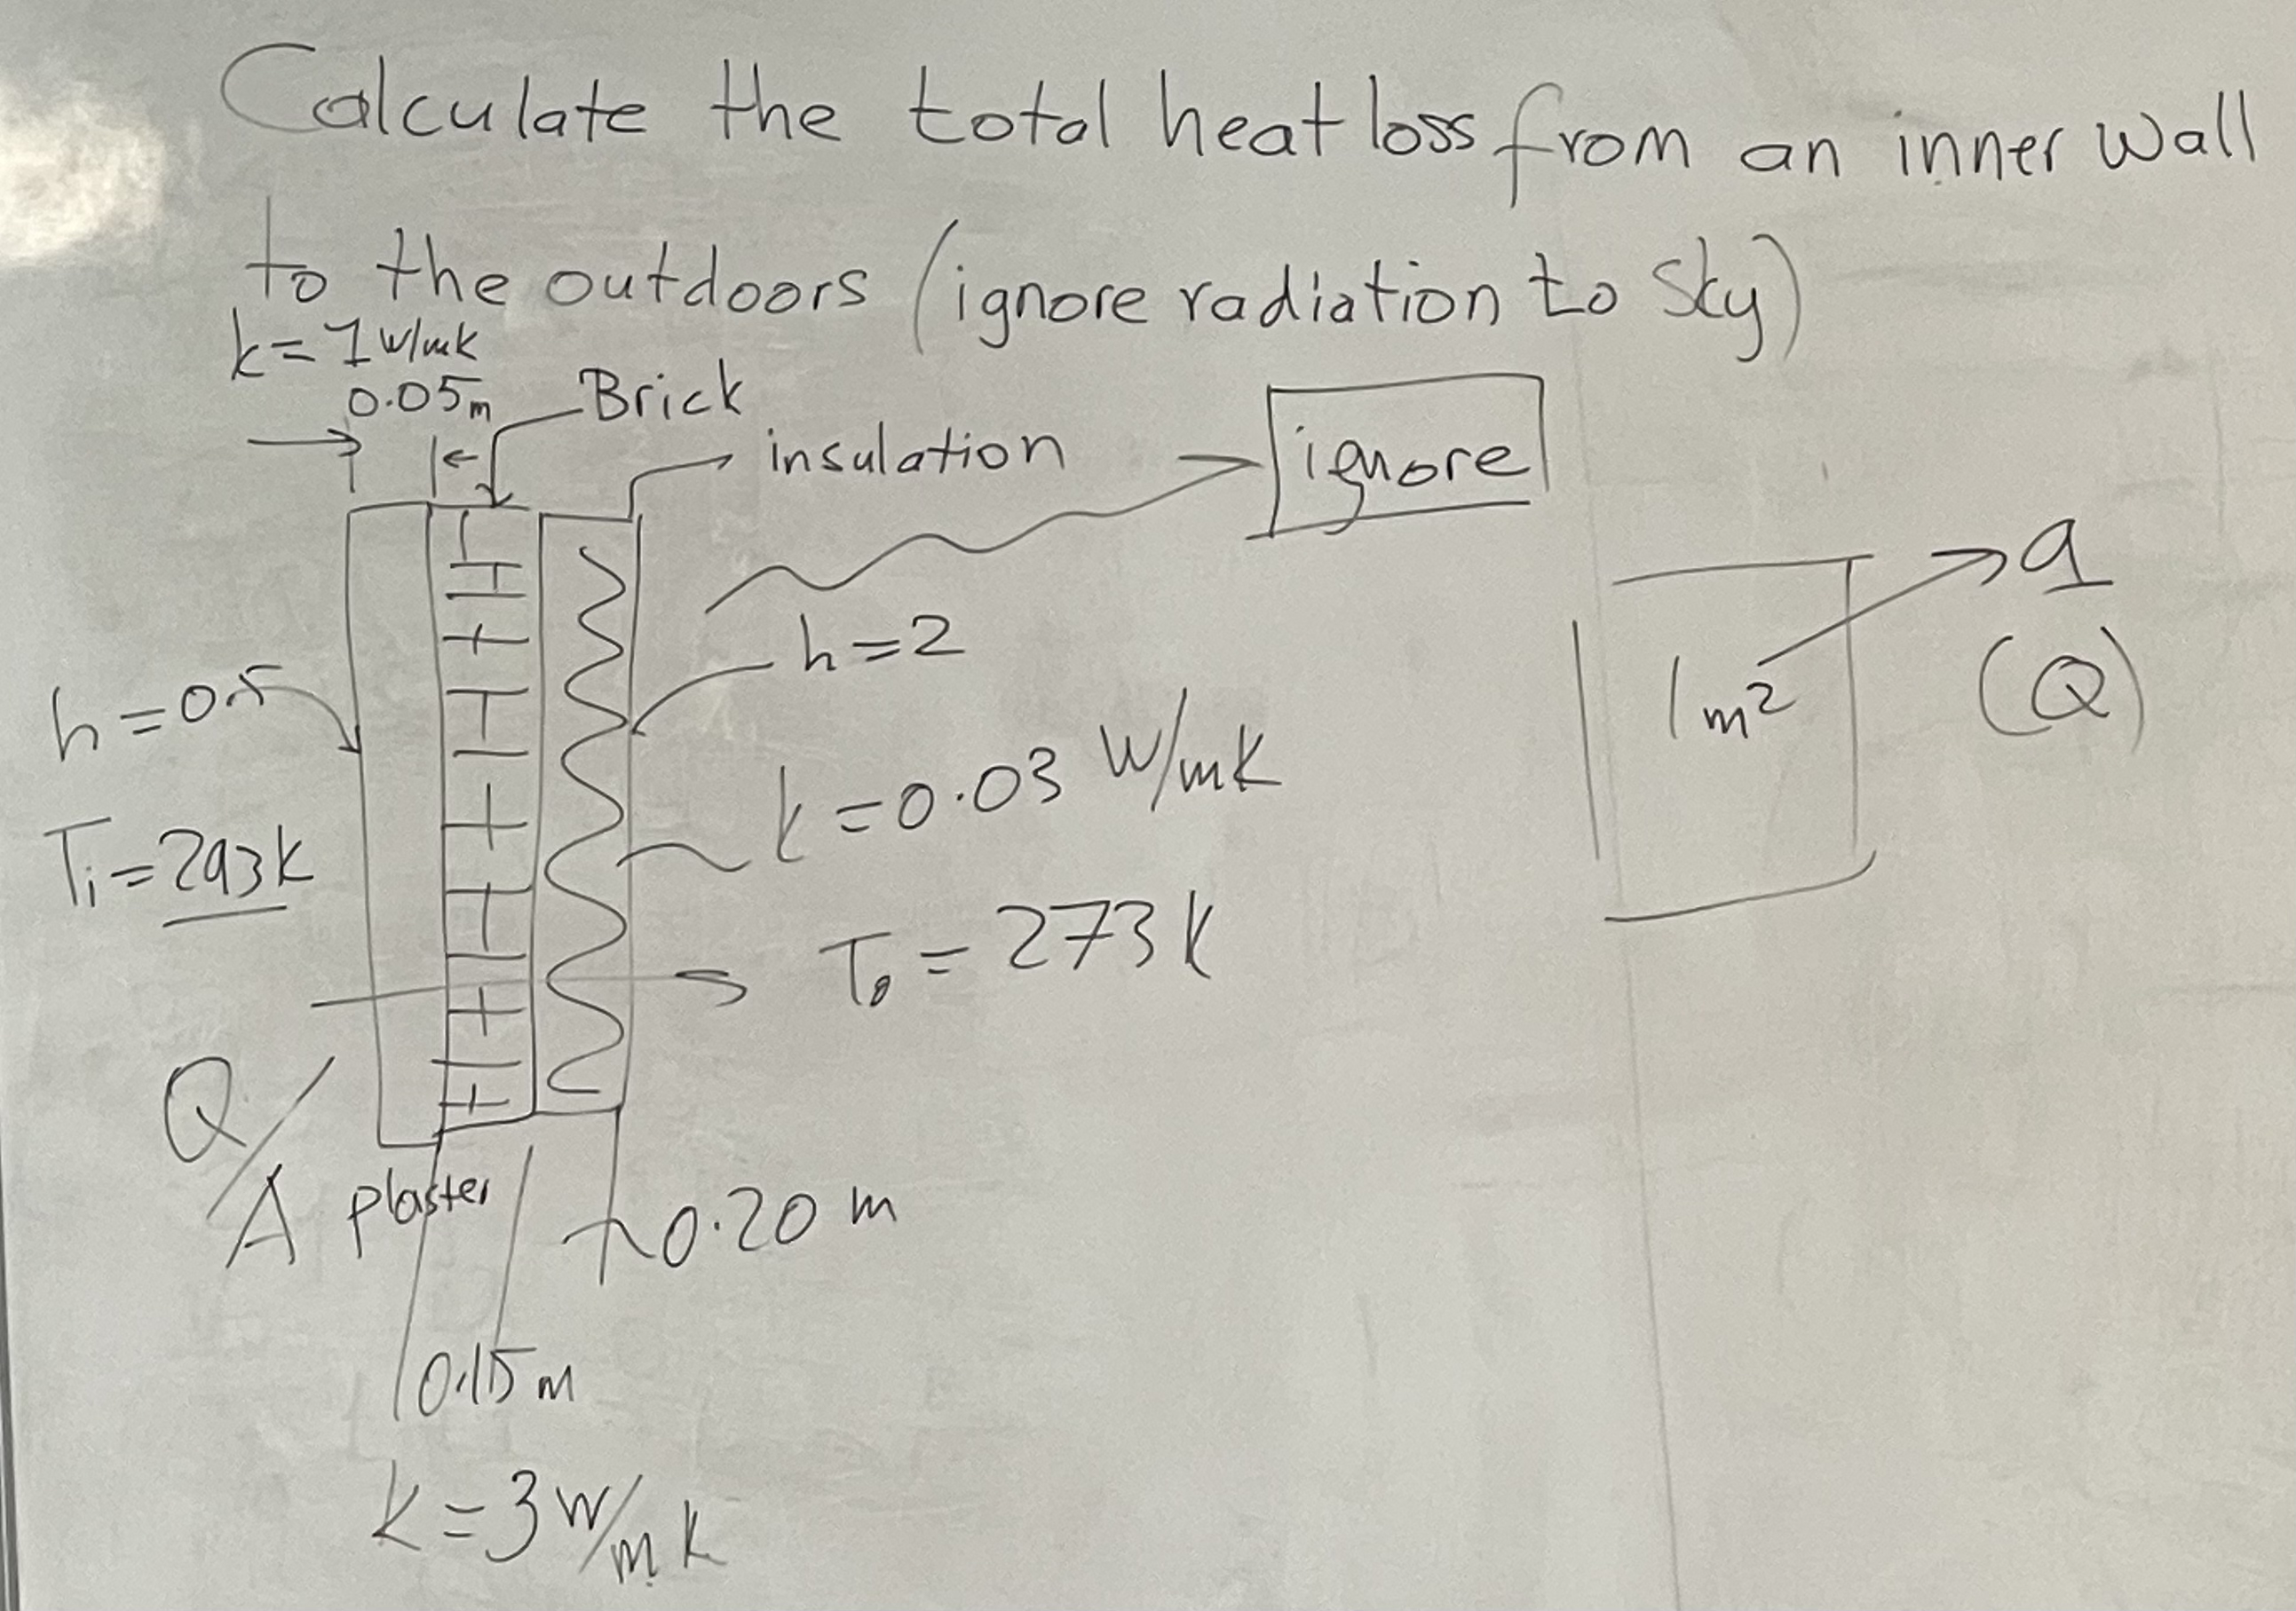 Calculate the total heat loss from an inner wall
to the outdoors (ignore radiation to sky)
k=1 W/mK
0.05m
Brick
insulation
ignore
h=2
h=0.5
k=0.03 W/mK
Ti=293K
To=273K
1m²
q
(Q)
Q/A
plaster
0.20 m
0.15m
k=3 W/mk